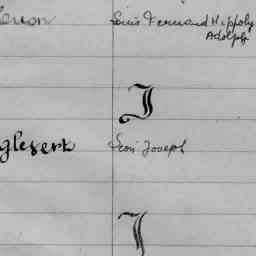 Louis Fernand Hippoly
Adolph
I
glesert Léon Joseph
J